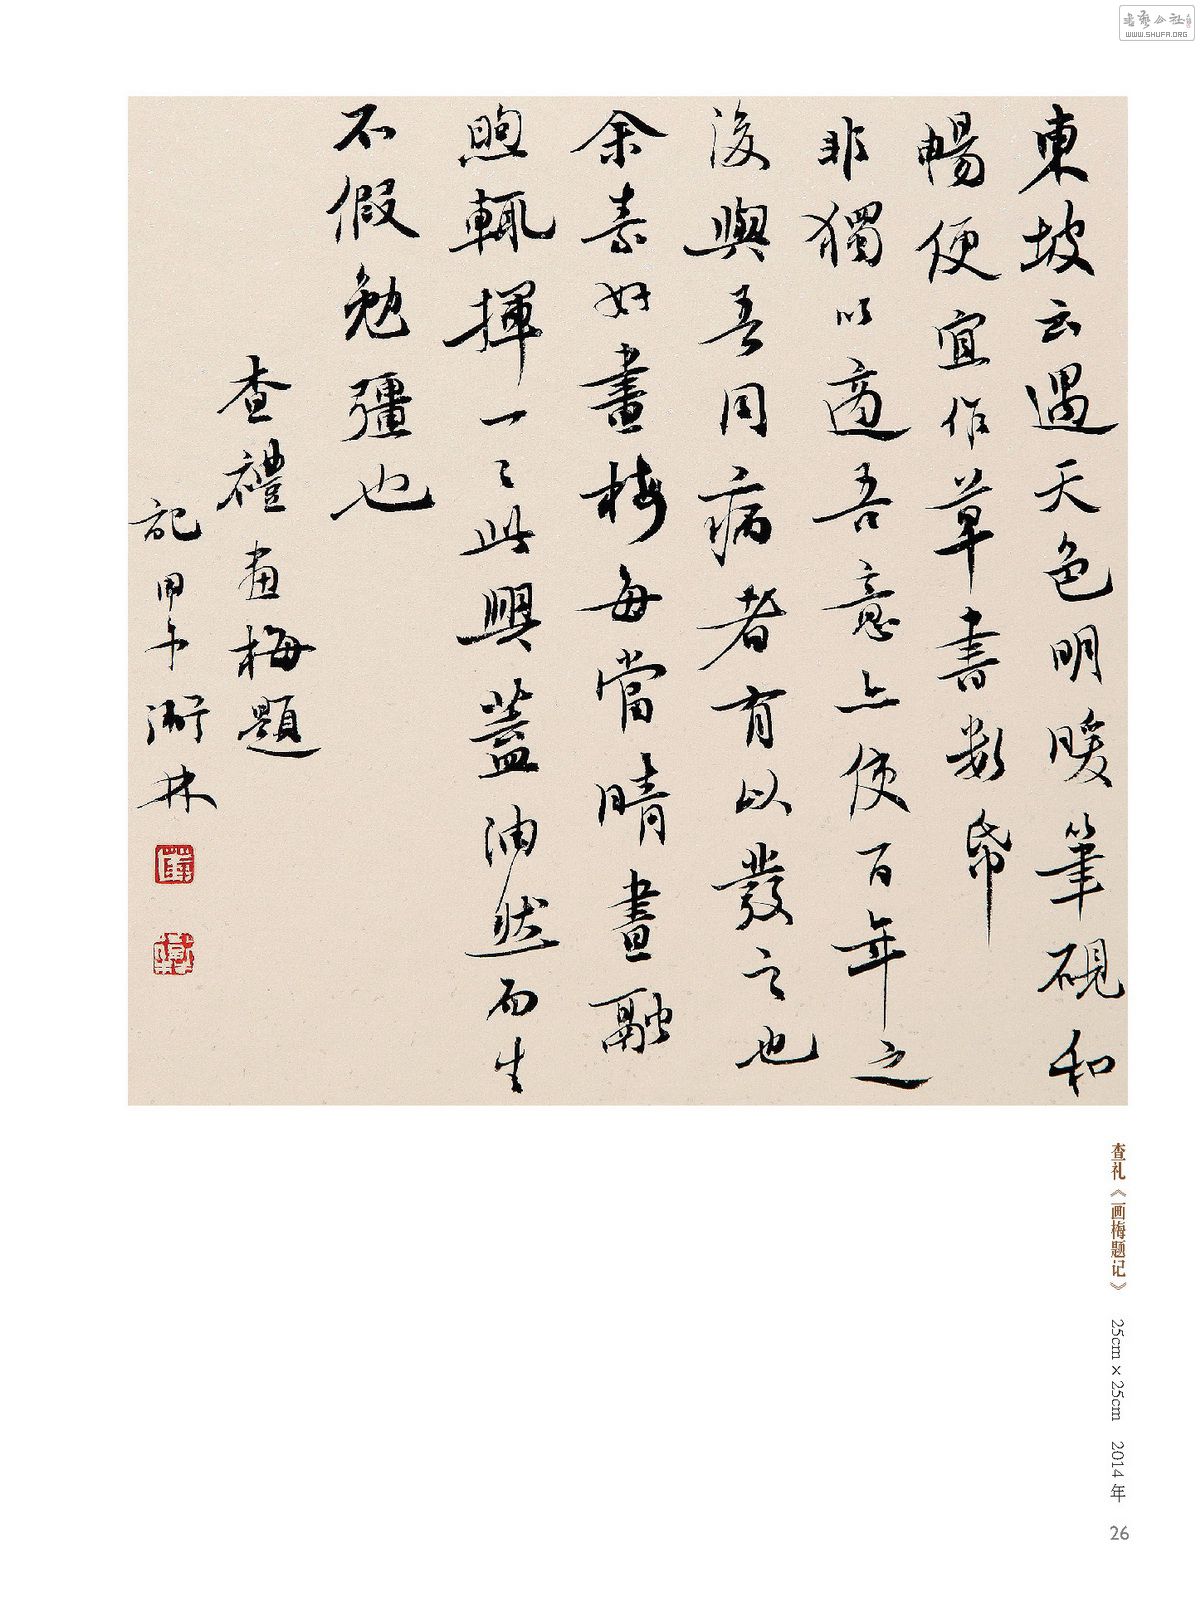 東坡云遇天色明暖筆硯和
暢便宜作草書數帋
非獨以適吾意亦使百年之
後與吾同病者有以發之也
余素好畫梅每當晴晝融
煦輒揮一二此興蓋油然而生
不假勉彊也
查禮画梅題
記甲午淅林
查礼《画梅题记》 25cm×25cm 2014年
26
WWW.SHUFA.ORG